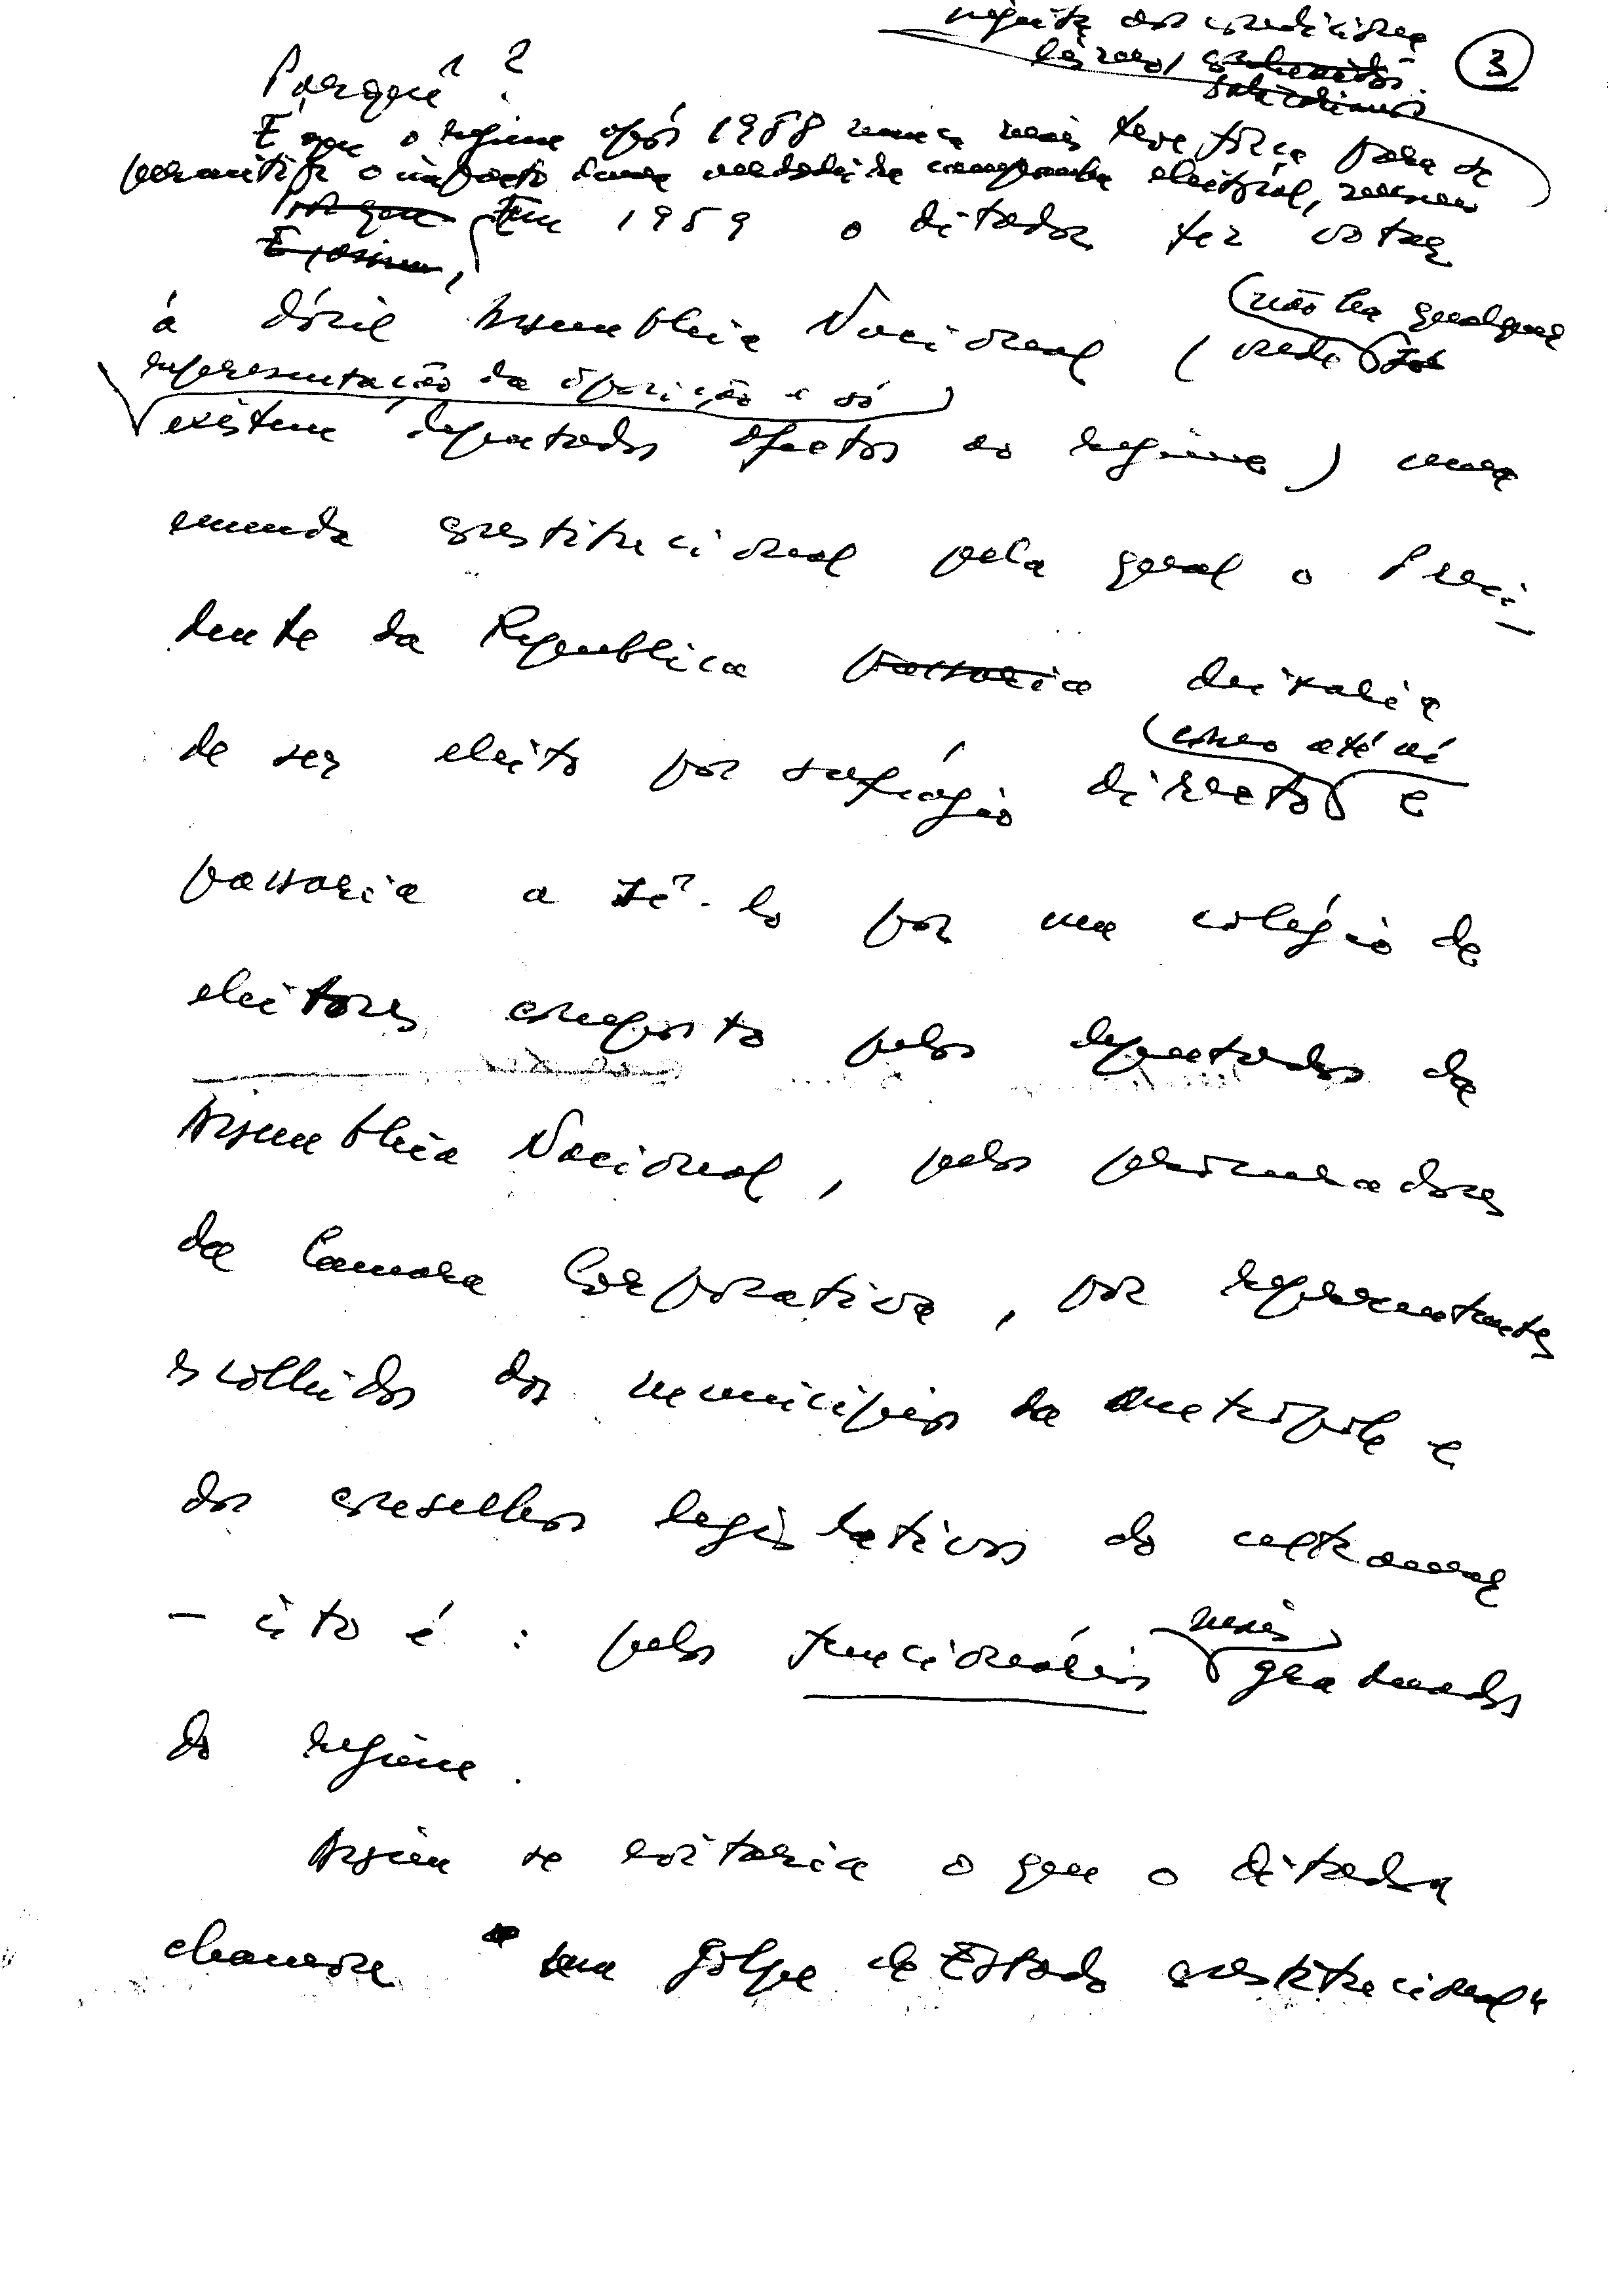 nas condições
③
Porquê?
É que o regime após 1958 nunca mais teve força para se
permitir o impacto duma verdadeira campanha eleitoral, mesmo
Porque Em 1959 o ditador fez votar
E, assim,
à dócil Assembleia Nacional (onde
(não há qualquer
representação da oposição e só
existem deputados afectos ao regime) uma
emenda constitucional pela qual o Presi-
dente da Republica passaria deixaria
(como até aí
de ser eleito por sufrágio directo e
passaria a sê-lo por um colégio de
eleitores composto pelos deputados da
Assembleia Nacional, pelos procuradores
da Camara Corporativa, por representantes
escolhidos dos municípios da metrópole e
dos conselhos legislativos do ultramar
– isto é: pelos funcionários graduados
mais
do regime.
Assim se evitaria o que o ditador
chamou "um golpe de Estado constitucional"